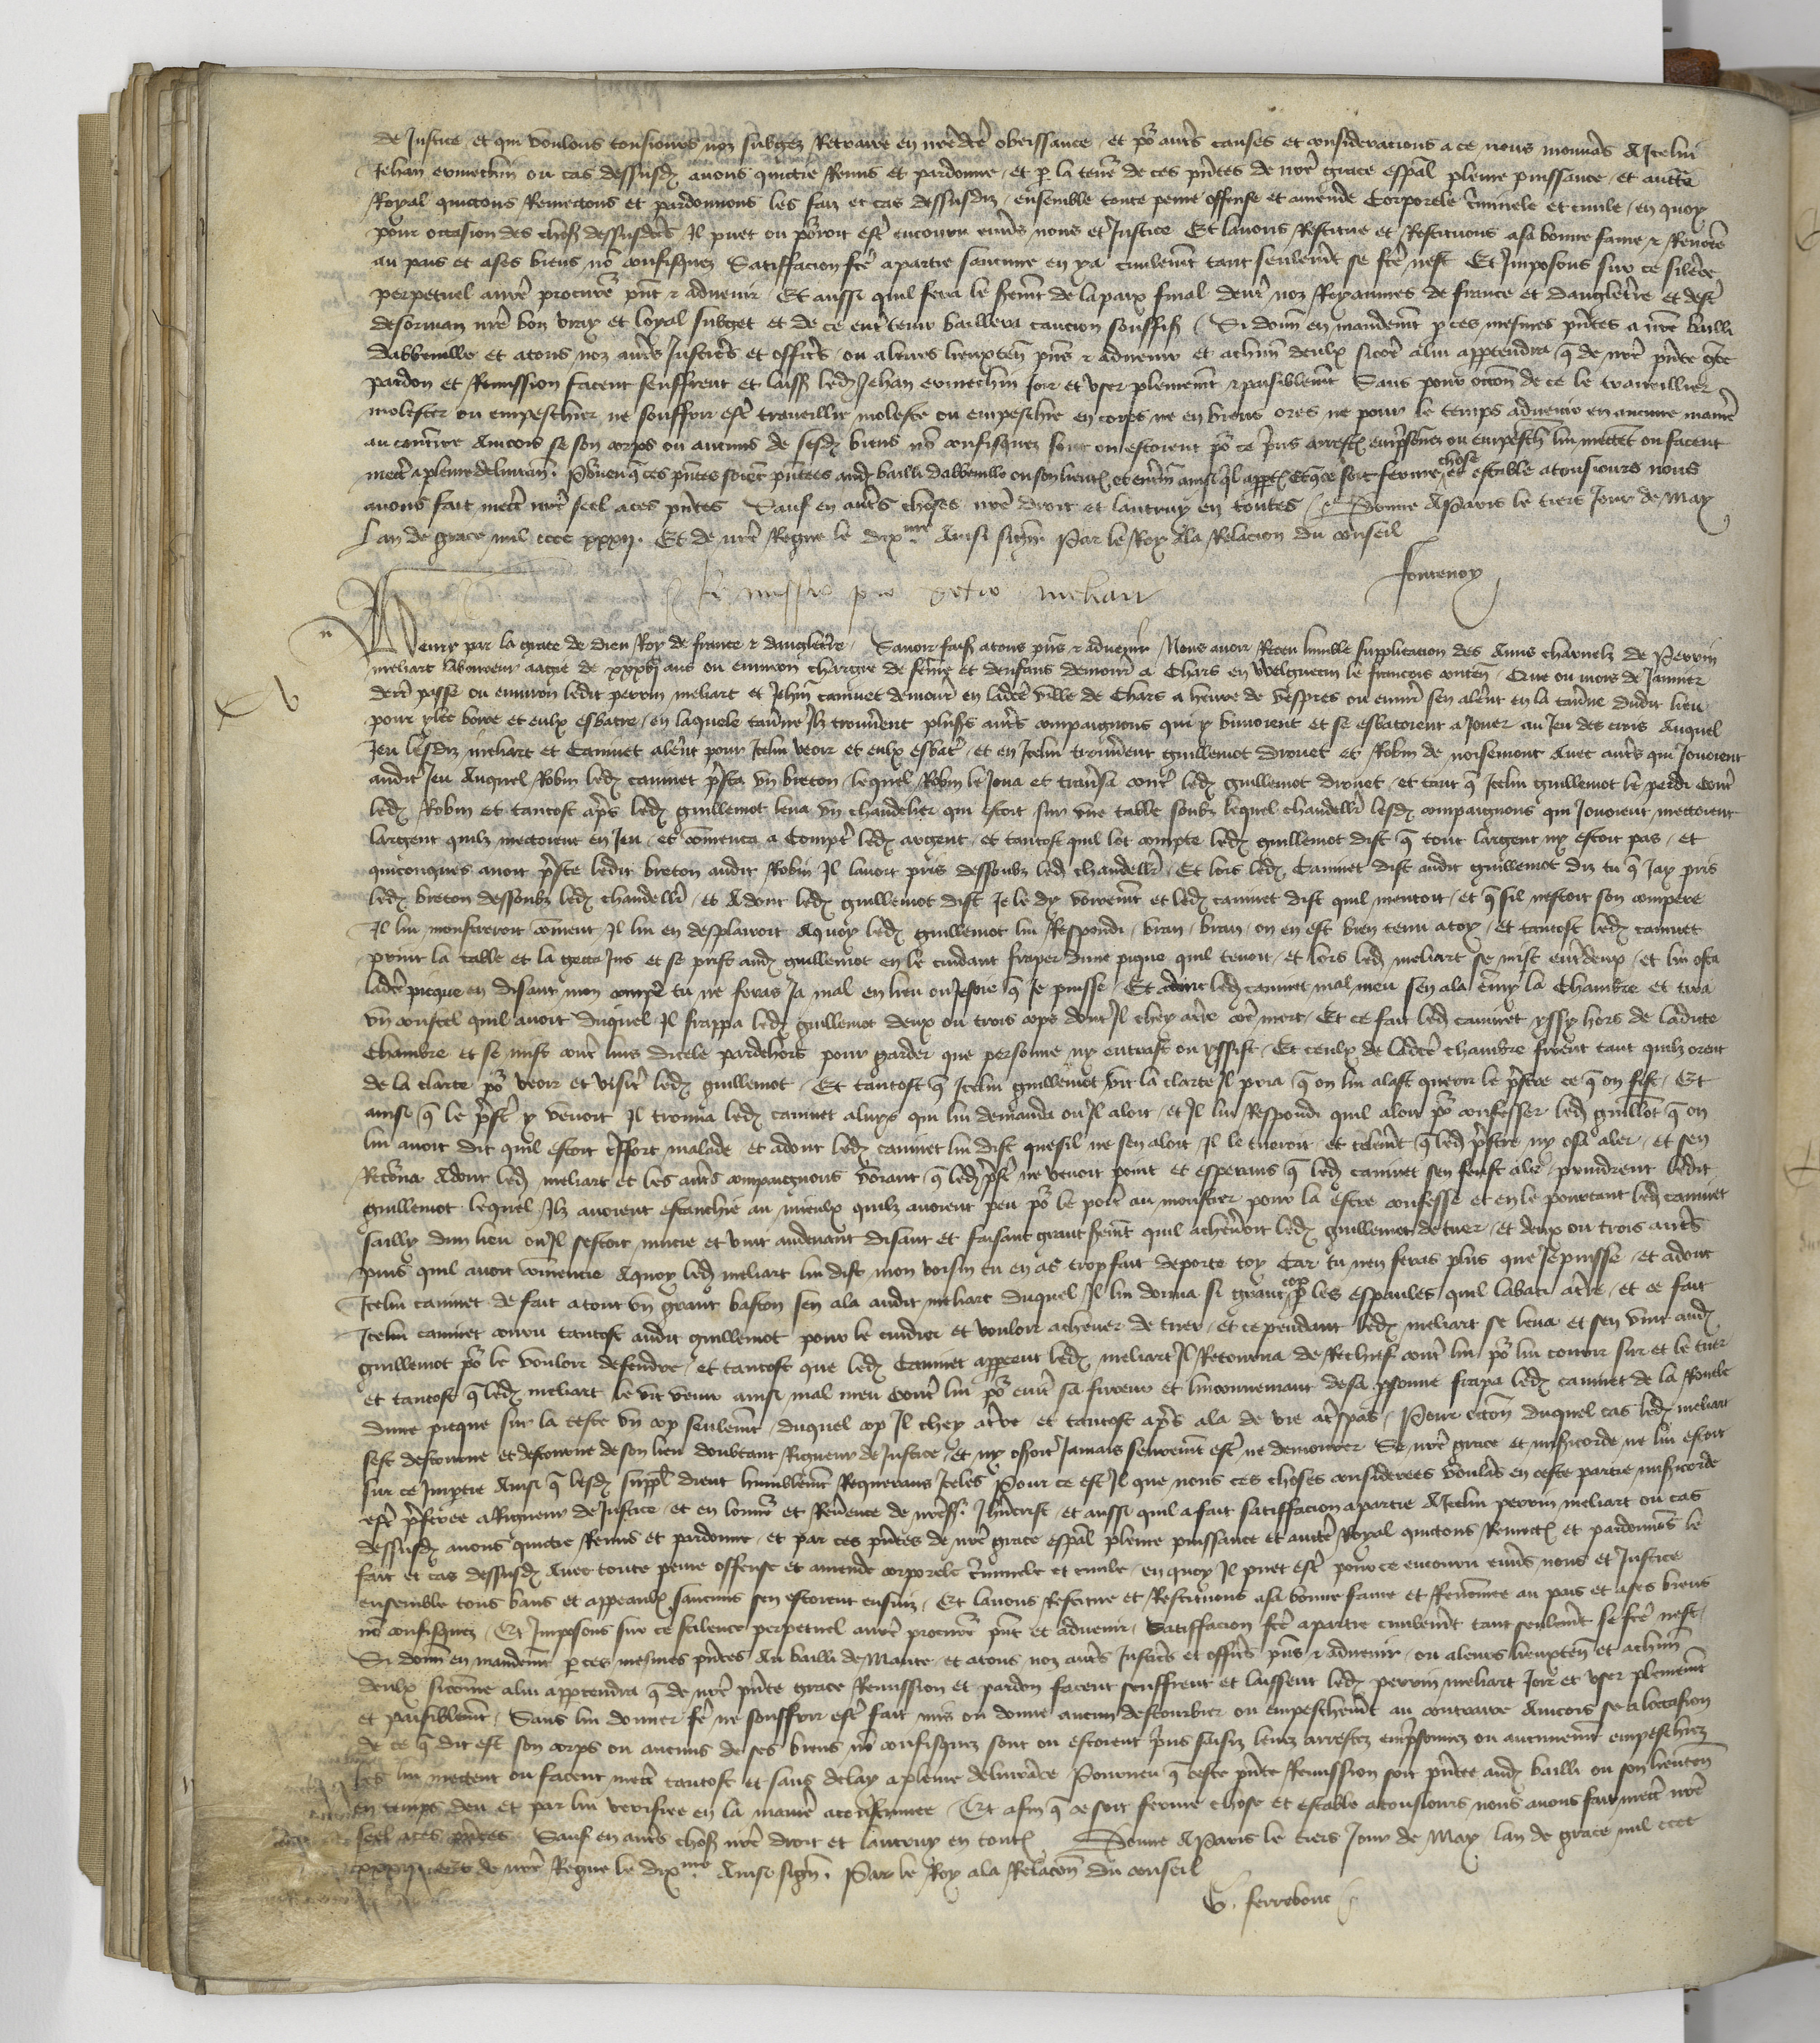 de Justice et qui voulons tousiours noz subgez Retraire en nrẽ dcẽ obeissance et põ autrs causes et consideracions a ce nous mouuãs A Icelui
Jehan ermechin ou cas dessusdz auons quictie Remis et pardonne et p la teneˀ de ces pñtes de nrẽ grace espãl pleine puissance et auctẽ
Royal quictons Remectons et pardonnons les faiz et cas dessusdiz ensemble toute peine offense et amende Corporele cˀminele et ciuile en quoy
pour occasion des choses dessusdictes Il puet ou porroit estˀ encouru enuˀs nous et Justice Et lauons Restitue et Restituons a sa bonne fame et Renõee
au pais et a ses biens nõ confisquez Satiffacion fcẽ a partie saucune en ya ciuilemẽt tant seulemẽt se fcẽ nest Et Imposons sur ce silẽce
perpetuel a nrẽ procurẽ pñt et aduenir Et aussi quil fera le seremẽt de la paix final dentˀ noz Royaumes de france et dangletˀre et destˀ
desormais nrẽ bon vray et loyal subget et de ce entˀtenir baillera caucion souffisˀ Si donñ en mandemẽt p ces mesmes pñtes a nrẽ bailli
dabbeuille et a tous noz autrs Justicˀs et officˀs ou a leurs lieuxteñ pñs et aduenir et a chũn deulx sicõe a lui apptendra q̃ de nrẽ pñte gˀce
pardon et Remission facent seuffrent et laissˀ ledz Jehan ermechin Joir et vser plainemẽt et paisiblemẽt Sans pour occõn de ce le traueillier
molester ou empeschier ne souffrir estˀ traueillie moleste ou empeschie en corps ne en biens ores ne pour le temps aduenir en aucune maniˀe
au contˀire Aincois se son corps ou aucuns de sesdz biens nõ confisquez sont ou estoient põ ce pˀins arrestˀ empˀsonnez ou empeschˀ lui mettẽt ou facent
mectˀ a pleine deliurãnˀ. Pourueu q̃ ces pñtes soiẽt pñtees audz bailli dabbeuille ou son lieutˀ et enterinˀ ainsi q̃l apptˀ Et q̃ ce soit ferme chose et estable a tousiours nous
auons fait mectˀ nrẽ seel a ces pñtes Sauf en autrs choses nrẽ droit et lautruy en toutes Donne A Paris le tiers Jour de May
Lan de grace mil cccc xxxij. Et de nrẽ Regne le dixme. Ainsi signˀ. Par le Roy A la Relacion du conseil
fontenoy
Remissio pro petro meliart
Henry par la grace de dieu Roy de france et dangletˀre Sauoir faisˀ a tous pñs et aduenir Nous auoir Receu humble supplicacion des Amis charnelz de Perrin
meliart laboureur aagie de xxxvj ans ou enuiron chargie de fẽme et denfans demourˀ a Chars en Welguecin le francois conteñ Que ou mois de Januier
derrˀ passe ou enuiron ledit perrin meliart et Jehñ caniuet demourˀ en ladcẽ ville de Chars a heure de vespres ou enuirˀ sen alerẽt en la tauˀne dudit lieu
pour ylec boire et eulx esbatre en laquele tauˀne Ilz trouuerent plusˀs autrs compaignons qui y buuoient et se esbatoient a Jouer au Jeu des ... Auquel
Jeu lesdiz meliart et Caniuet alerẽt pour Icelui veoir et eulx esbatˀ et en Icelui trouuerent guillemot drouet et Robin de noisemont Auec autrs qui Jouoient
audit Jeu Auquel Robin ledz caniuet pˀsta vn breton lequel Robin le Joua et ... contˀ ledz guillemot drouet et tant q̃ Icelui guillemot le perdi contˀ
ledz Robin et tantost apˀs ledz guillemot leua vn chandelier qui estoit sur vne table soubz lequel chandelirˀ lesdz compaignons qui Jouoient mettoient
largent quilz mectoient en Jeu et cõmenca a Comptˀ ledz argent et tantost quil lot compte ledz guillemot dist q̃ tout largent ny estoit pas et
quiconques auoit pˀste ledit breton audit Robin Il lauoit pris dessoubz ledz chandelirˀ Et lors ledz Caniuet dist audit guillemot diz tu q̃ Jay pris
ledz breton dessoubz ledz chandelirˀ et Adont ledz guillemot dist Je le dy voiremẽt et ledz caniuet dist quil mentoit et q̃ sil nestoit son compere
Il lui monstreroit cõment Il lui en desplairoit A quoy ledz guillemot lui Respondi bran bran on en est bien tenu a toy et tantost ledz caniuet
print la table et la getta Jus et se prist audz guillemot en le cuidant fraper dune pique quil tenoit et lors ledz meliart se mist entˀdeux et lui osta
ladcẽ picque en disant mon compẽ tu ne feras Ja mal en lieu ou Je soie q̃ Je puisse Et adont ledz caniuet mal meu sen ala emmy la Chambre et tira
vn coustel quil auoit duquel Il frappa ledz guillemot deux ou trois cops dont Il chey a tˀre cõe mort Et ce fait ledz caniuet yssy hors de ladicte
Chambre et se mist contˀ luis dicele par dehors pour garder que personne ny entrast ou yssist Et ceulx de ladcẽ chambre firent tant quilz orent
de la clarte põ veoir et visitˀ ledz guillemot Et tantost q̃ Icelui guillemot vit la clarte Il pria q̃ on lui alast querir le pˀstre ce q̃ on fist Et
ainsi q̃ le pˀstˀ y venoit Il trouua ledz caniuet a luys qui lui demanda ou Il aloit et Il lui Respondi quil aloit põ confesser ledz guillõt q̃ on
lui auoit dit quil estoit effort malade et adont ledz caniuet lui dist que sil ne sen aloit Il le tueroit et telemẽt q̃ ledz pˀstre ny osa aler et sen
Retõrna Adont ledz meliart et les autrs compaignons voyant q̃ ledz pˀstˀ ne venoit point et esperans q̃ ledz caniuet sen feust ale prindrent ledit
guillemot lequel Ilz auoient estanchie au mieulx quilz auoient peu põ le portˀ au moustier pour la estre confesse et en le portant ledz caniuet
sailly dun lieu ou Il sestoit mucie et vint au deuant disant et faisant grant seremẽt quil acheueroit ledz guillemot de tuer et deux ou trois autrs
puis quil auoit cõmencie A quoy ledz meliart lui dist mon voisin tu en as trop fait deporte toy Car tu nen feras plus que Je puisse et adont
Icelui caniuet de fait a tout vn grant baston sen ala audit meliart duquel Il lui donna si grant cop p les espaules quil labati a tˀre et ce fait
Icelui caniuet couru tantost audit guillemot pour le cuidier et vouloir acheuer de tuer et ce pendant ledz meliart se leua et sen vint audz
guillemot põ le vouloir defendre et tantost que ledz Caniuet apperceut ledz meliart Il Retourna de Rechief contˀ lui põ lui courir sur et le tuer
et tantost q̃ ledz meliart le vit venir ainsi mal meu contˀ lui põ euitˀ sa fureur et linconuenient de sa psonne frapa ledz caniuet de la ...
dune picque sur la teste vn cop seulemẽt duquel cop Il chey a tˀre et tantost apˀs ala de vie a tˀspas Pour occõn duquel cas ledz meliart
sest destourne et destourne de son lieu doubtant Rigueur de Justice et ny oseroitˀ Jamais seuremẽt estˀ ne demourer Se nrẽ grace et misˀicorde ne lui estoit
sur ce Impartie Ainsi q̃ lesdz supplˀ dient humblemẽt Requerans Iceles Pour ce est Il que nous ces choses considerees voulãs en ceste partie misˀicorde
estˀ pˀferee a Rigueur de Justice et en lonneˀ et Reuˀence de nrẽ sˀ Jhũcrist et aussi quil a fait satiffacion a partie A Icelui perrin meliart ou cas
dessusdz auons quictie Remis et pardonne et par ces pñtes de nrẽ grace espãl pleine puissance et auctẽ Royal quictons Remectˀ et pardonnõs le
fait et cas dessusdz Auec toute peine offense et amende corporele cˀminele et ciuile en quoy Il puet estˀ pour ce encouru enuˀs nous et Justice
ensemble tous bans et appeaulx saucuns sen estoient ensuiz Et lauons Restitue et Restituons a sa bonne fame et Renõmee au pais et a ses biens
nõ confisquez Et Imposons sur ce scilence perpetuel a nrẽ procurẽ pñt et aduenir Satiffacion fcẽ a partie ciuilemẽt tant seulemẽt se fcẽ nest
Si donñ en mandemẽt p ces mesmes pñtes Au bailli de Mante et a tous noz autrs Justicˀs et officˀs pñs et aduenir ou a leurs lieuxteñ et a chũn
deulx sicõme a lui apptendra q̃ de nrẽ pñte grace Remission et pardon facent seuffrent et laissent ledz perrin meliart Joir et vser plainemẽt
et paisiblemẽt Sans lui donner fẽ ne souffrir estˀ fait mis ou donne aucun destourbier ou empeschemẽt au contraire Aincois se a loccasion
de ce q̃ dit est son corps ou aucuns de ses biens nõ confisquez sont ou estoient pˀins saisiz leuez arrestez empˀsonnez ou aucunemẽt empeschiez
les lui mettent ou facent mectˀ tantost et sans delay a pleine deliurãce Pourueu q̃ ceste pñte Remission soit pñtee audz bailli ou son lieuteñ
en temps deu et par lui verifiee en la maniˀe acoustumee Et afin q̃ ce soit ferme chose et estable a tousiours nous auons fait mectˀ nrẽ
seel a ces pñtes Sauf en autrs chosˀ nrẽ droit et lautruy en toutˀ Donne A Paris le tiers Jour de May lan de grace mil cccc
xxxij et de nrẽ Regne le dixme. Ainsi signˀ. Par le Roy a la Relacõn du conseil
G. ferrebouc